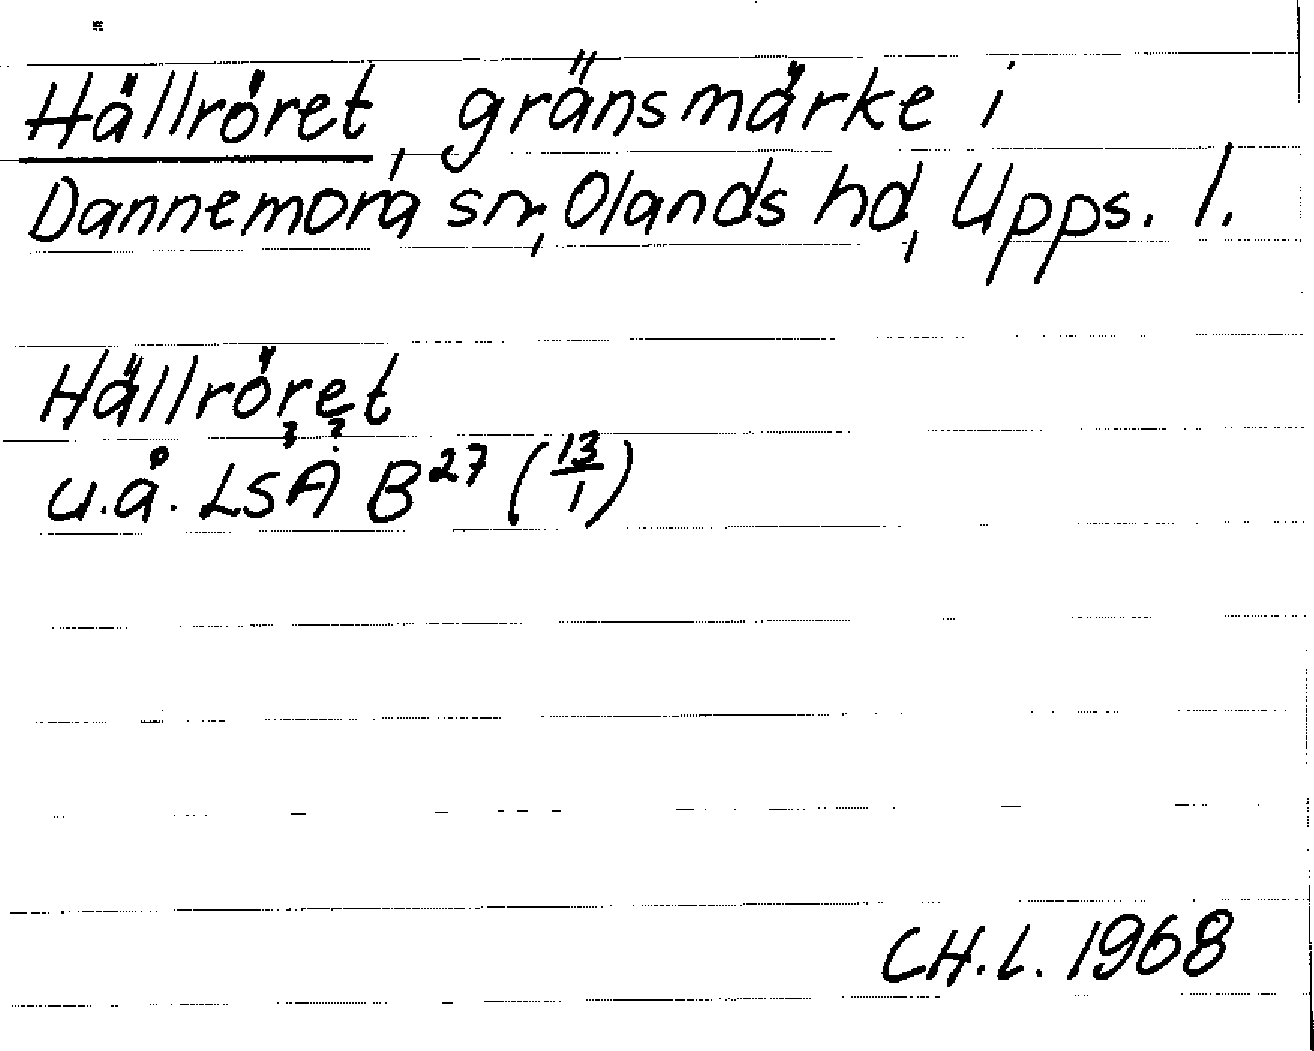 Hällröret, gränsmärke i
Dannemora sn, Olands hd, Upps. l.
Hällröret
? ?
u.å. LSA B 27 (13/1)
CH.L. 1968